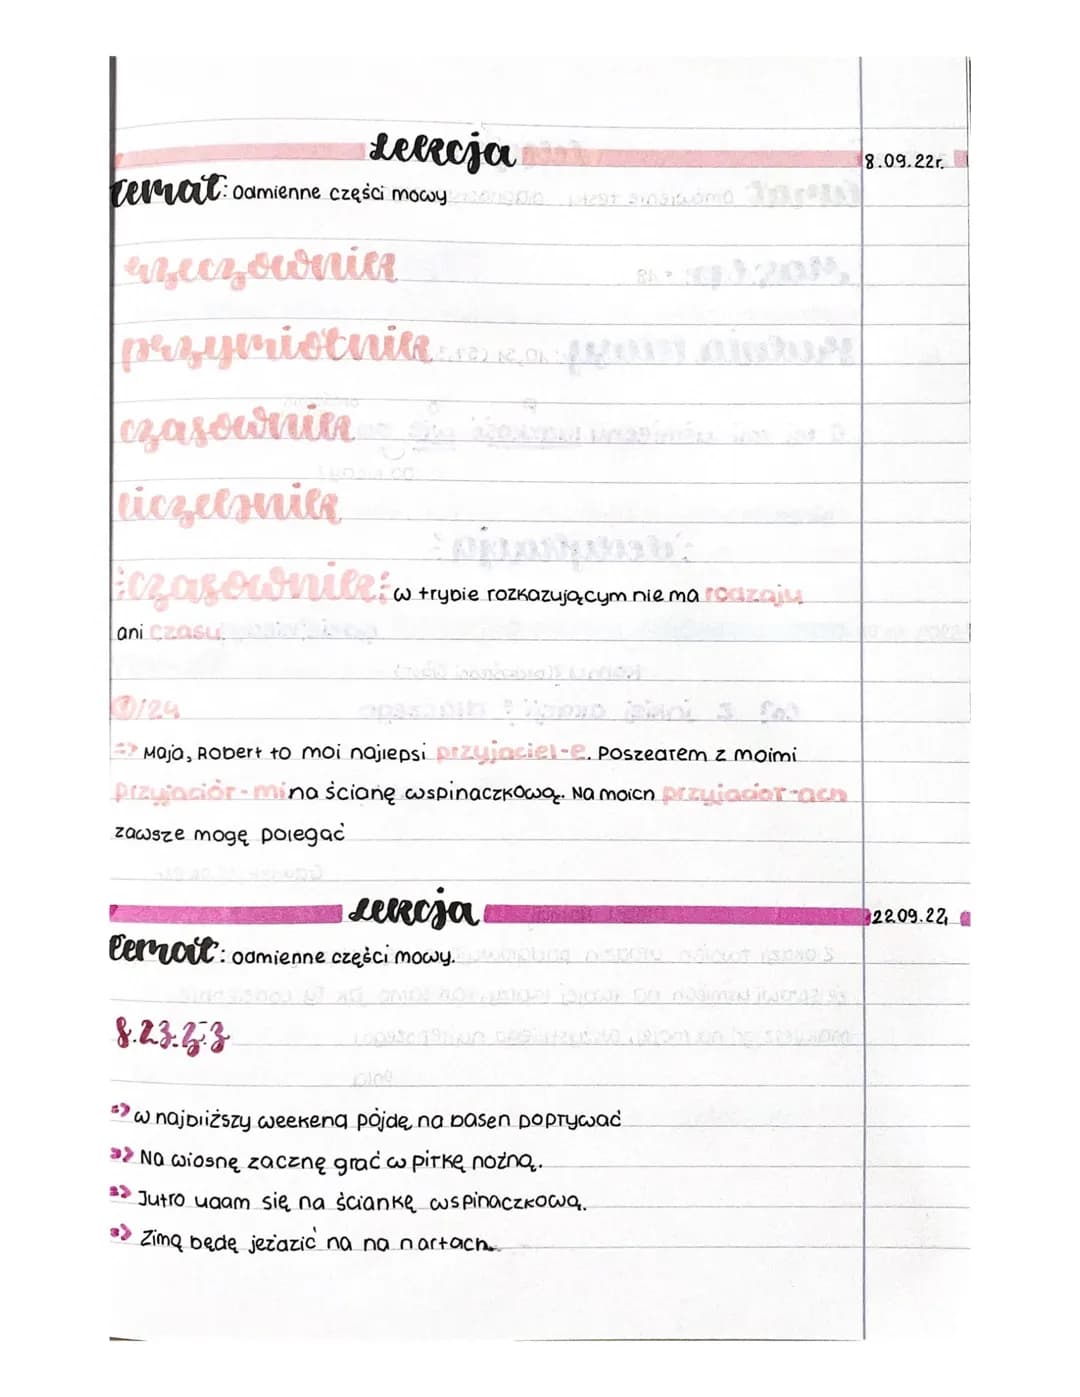 Lekcja 8.09.22r.
Temat: Odmienne części mowy
rzeczownik
przymiotnik
czasownik
liczebnik
:czasownik: w trybie rozkazującym nie ma rodzaju
ani czasu.
/24
=> Maja, Robert to moi najlepsi przyjaciel-e. Poszedłem z moimi
przyjaciół-mi na ścianę wspinaczkową. Na moich przyjaciół-ach
zawsze mogę polegać
Lekcja 22.09.22
Temat: odmienne części mowy.
s.23.z.3
=> w najbliższy weekend pójdę na basen popływać
=> Na wiosnę zacznę grać w piłkę nożną.
=> Jutro udam się na ściankę wspinaczkową.
=> Zimą będę jeździć na na nartach.